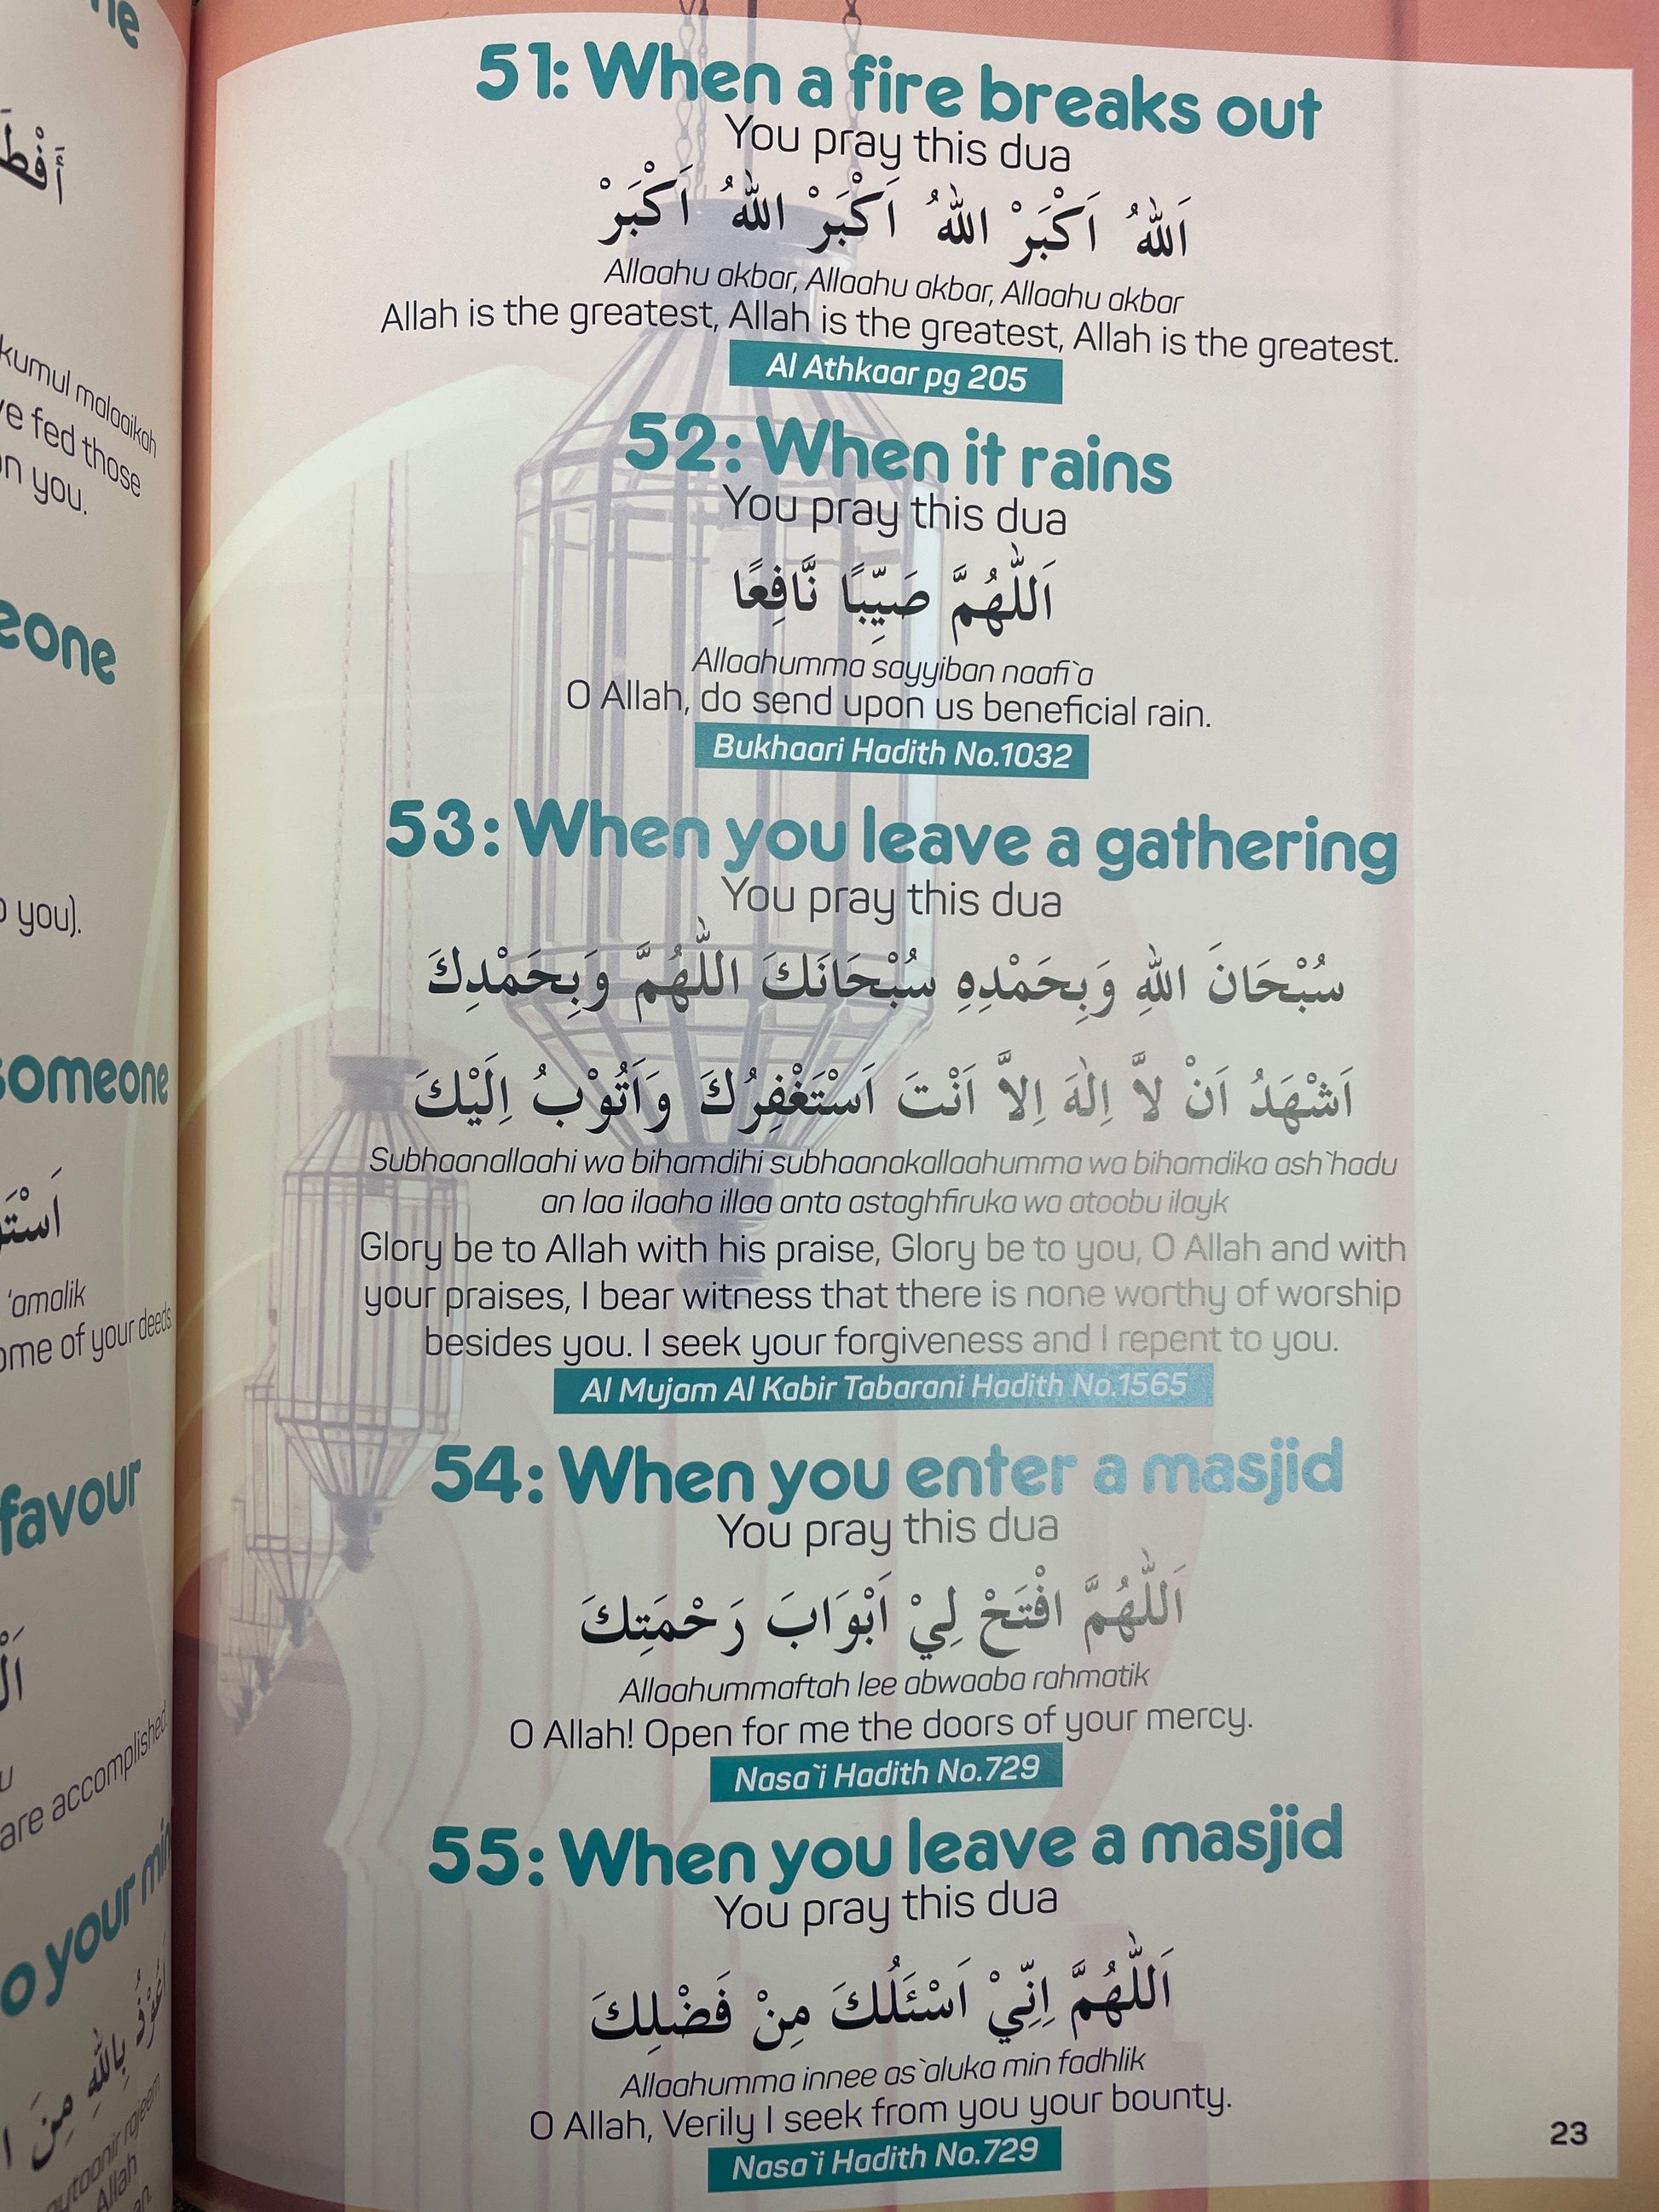 51: When a fire breaks out
You pray this dua
اَللهُ اَكْبَرْ اللهُ اَكْبَرْ اللهُ اَكْبَرْ
Allaahu akbar, Allaahu akbar, Allaahu akbar
Allah is the greatest, Allah is the greatest, Allah is the greatest.
Al Athkaar pg 205
52: When it rains
You pray this dua
اَللّٰهُمَّ صَيِّبًا نَّافِعًا
Allaahumma sayyiban naafi`a
O Allah, do send upon us beneficial rain.
Bukhaari Hadith No.1032
53: When you leave a gathering
You pray this dua
سُبْحَانَ اللهِ وَبِحَمْدِهِ سُبْحَانَكَ اللّٰهُمَّ وَبِحَمْدِكَ
اَشْهَدُ اَنْ لاَّ اِلٰهَ اِلاَّ اَنْتَ اَسْتَغْفِرُكَ وَاَتُوْبُ اِلَيْكَ
Subhaanallaahi wa bihamdihi subhaanakallaahumma wa bihamdika ash`hadu
an laa ilaaha illaa anta astaghfiruka wa atoobu ilayk
Glory be to Allah with his praise, Glory be to you, O Allah and with
your praises, I bear witness that there is none worthy of worship
besides you. I seek your forgiveness and I repent to you.
Al Mujam Al Kabir Tabarani Hadith No.1565
54: When you enter a masjid
You pray this dua
اَللّٰهُمَّ افْتَحْ لِيْ اَبْوَابَ رَحْمَتِكَ
Allaahummaftah lee abwaaba rahmatik
O Allah! Open for me the doors of your mercy.
Nasa`i Hadith No.729
55: When you leave a masjid
You pray this dua
اَللّٰهُمَّ اِنِّيْ اَسْئَلُكَ مِنْ فَضْلِكَ
Allaahumma innee as`aluka min fadhlik
O Allah, Verily I seek from you your bounty.
Nasa`i Hadith No.729
23
kumul malaaikah
fed those
you.
you).
someone
‘amalik
of your deeds
favour
are accomplished
your
بِاللهِ مِنَ
Allah